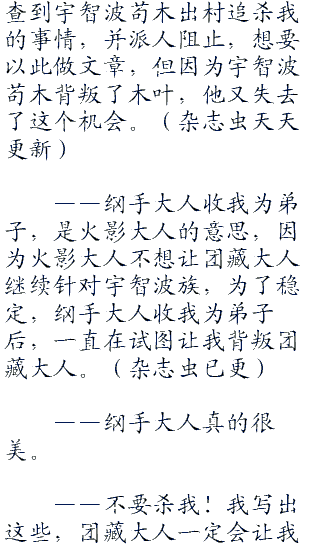 查到宇智波苟木出村追杀我
的事情，并派人阻止，想要
以此做文章，但因为宇智波
苟木背叛了木叶，他又失去
了这个机会。（杂志虫天天
更新）
——纲手大人收我为弟
子，是火影大人的意思，因
为火影大人不想让团藏大人
继续针对宇智波族，为了稳
定，纲手大人收我为弟子
后，一直在试图让我背叛团
藏大人。（杂志虫已更）
——纲手大人真的很
美。
——不要杀我！我写出
这些，团藏大人一定会让我